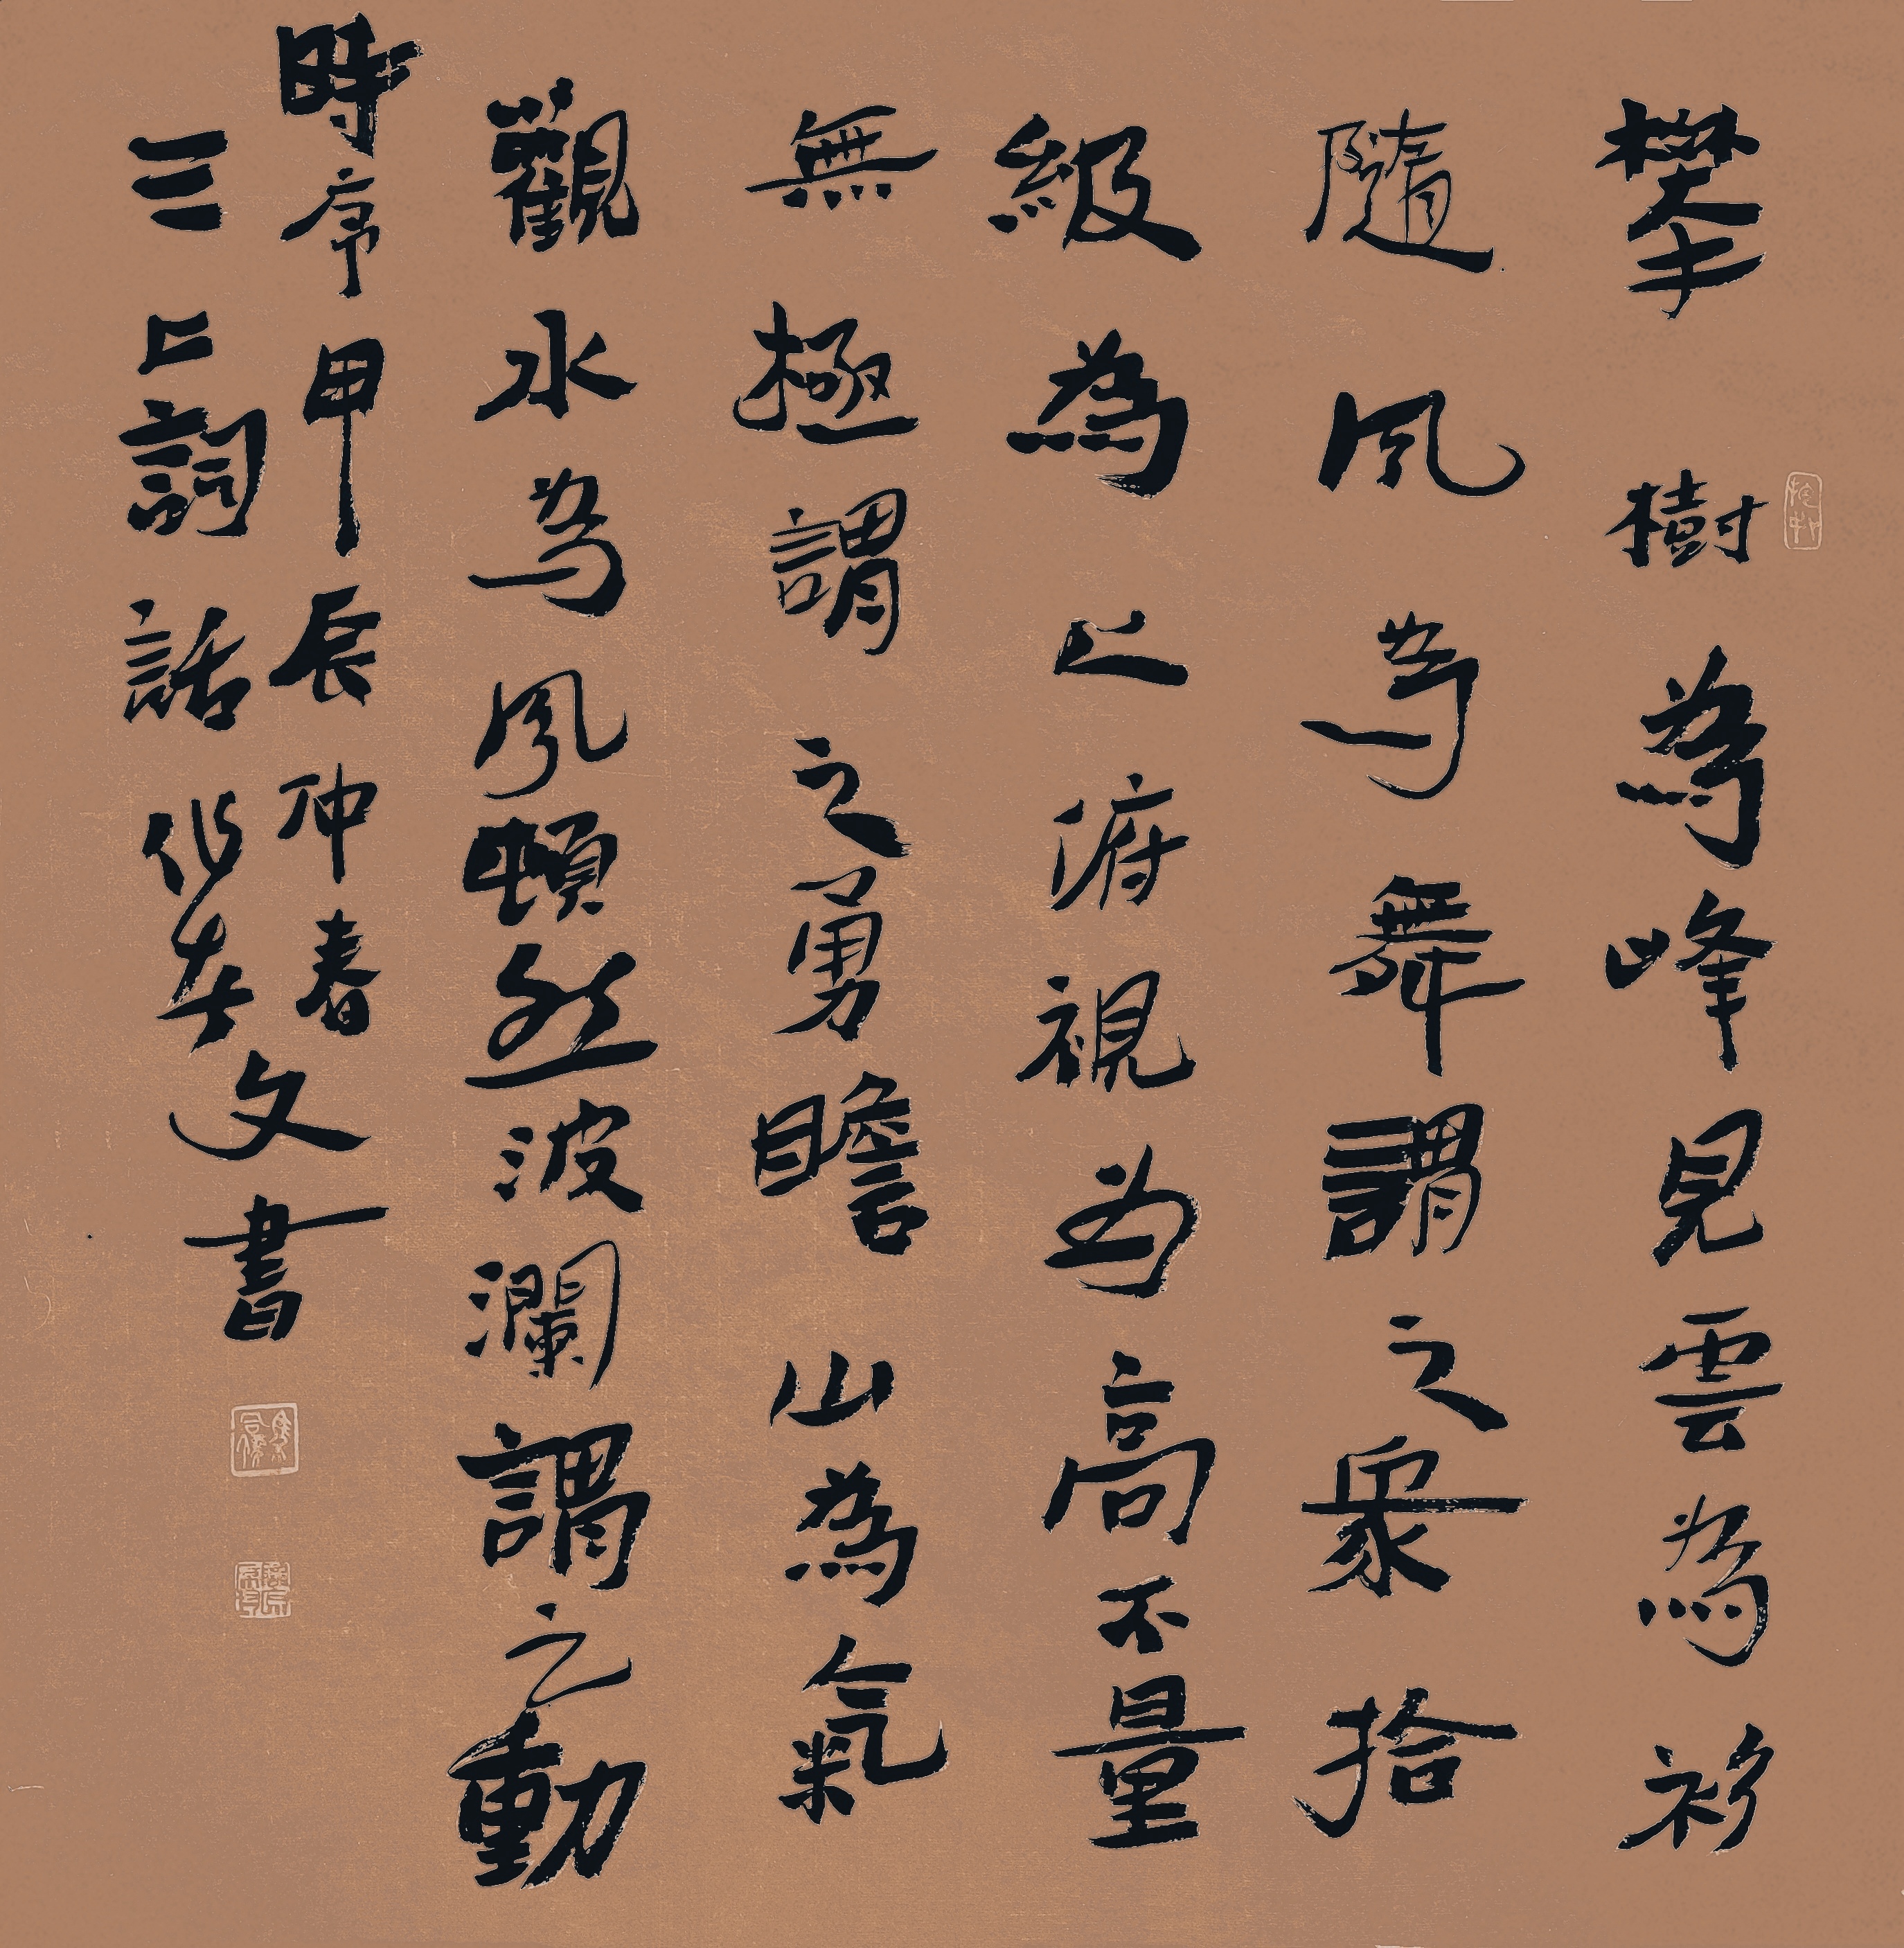 攀樹為峰見雲為衫
隨風為舞謂之衆拾
級為上俯視為高不量
無極謂之勇瞻山為氣
觀水為風頓然波瀾謂之動
時序甲辰仲春
三上詞話文書